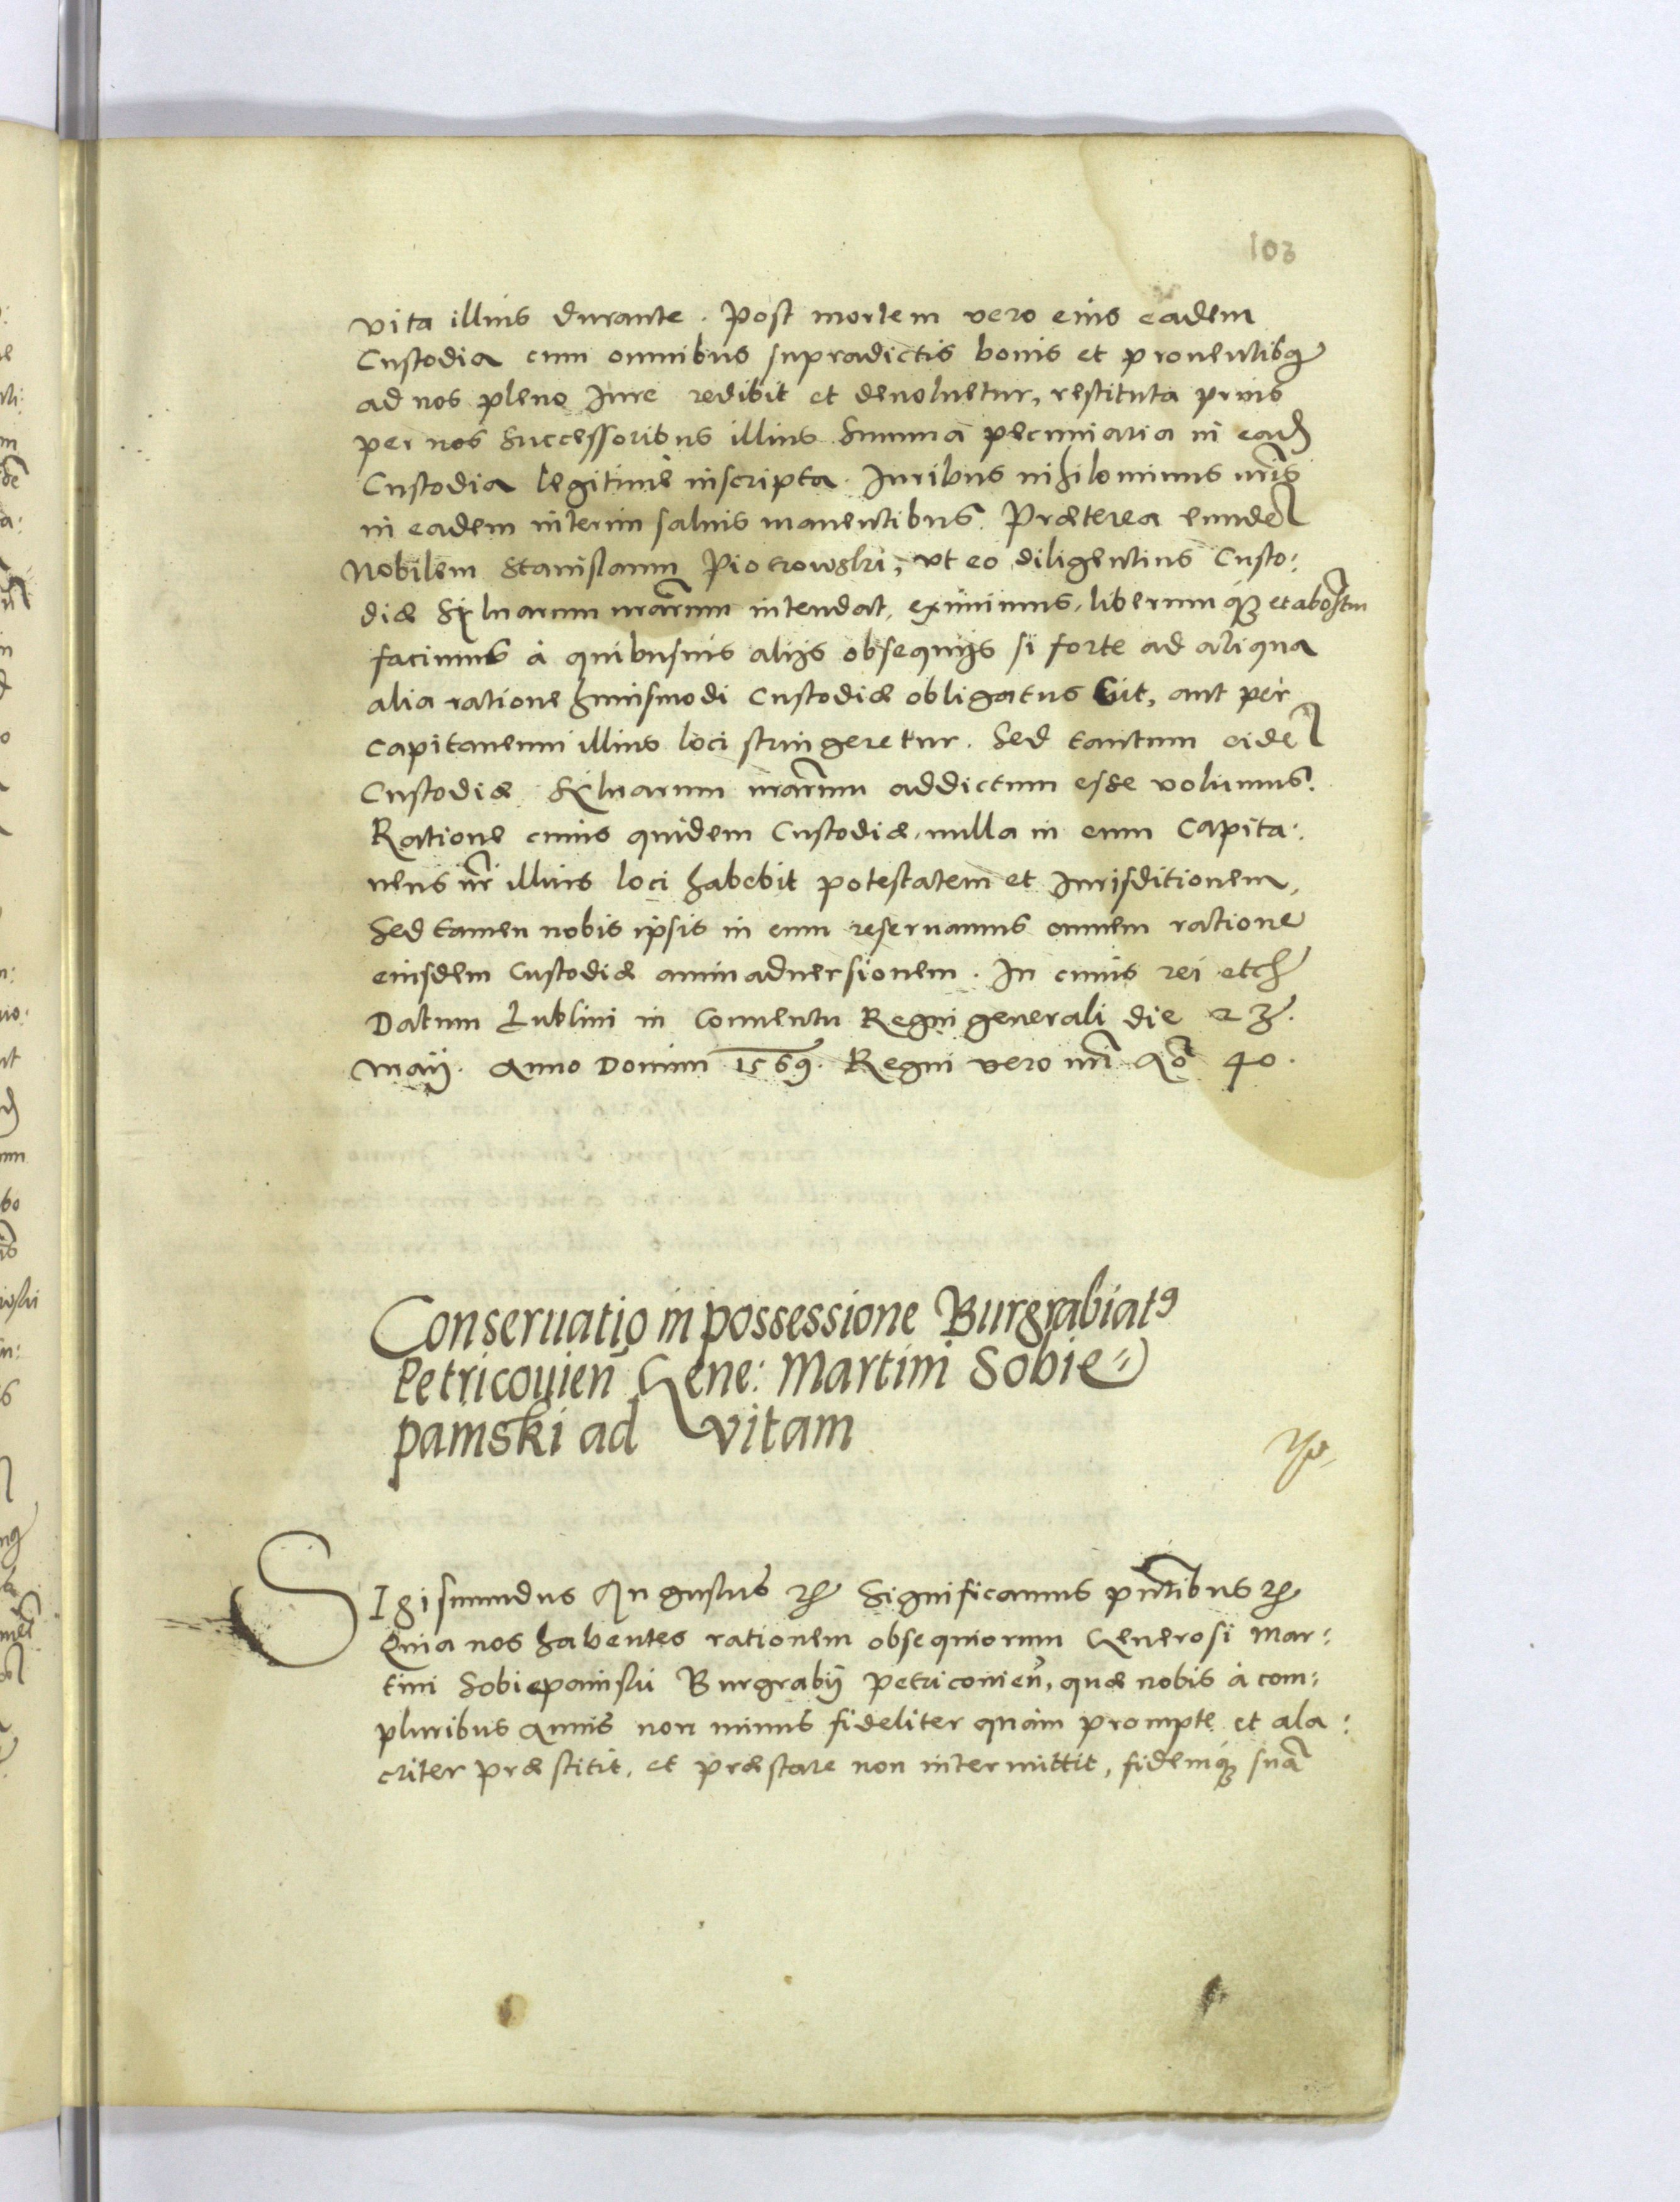 103
vita illius durante. Post mortem vero eius eadem
Custodia cum omnibus supradictis bonis et prouentibq
ad nos pleno Iure redibit et deuoluetur, restituta prius
per nos Successoribus illius Summa pecuniaria in eadē
Custodia legitime inscripta. Iuribus nihilominus nr̃is
in eadem interim saluis manentibus. Præterea eundē
Nobilem Stanislaum Piotrowski, vt eo diligentius Custo:
diæ Syluarum nrārum intendat, eximimus, liberumq; et
facimus à quibusuis alijs obsequijs si forte ad aliqua
alia ratione huiusmodi Custodiæ obligatus sit, aut per
Capitaneum illius loci stringeretur. Sed tantum eidē
Custodiæ Syluarum nrārum addictum esse volumus.
Ratione cuius quidem Custodiæ, nulla in eum Capita:
neus nr̃ illius loci habebit potestatem et Iurisditionem,
Sed tamen nobis ipsis in eum reseruamus omnem ratione
eiusdem Custodiæ animaduersionem. In cuius rei etc̃
Datum Lublini in Conuentu Regni generali die 23.
Maij. Anno Domini 1569. Regni vero nr̃i Aō 40.
Conseruatio in possessione Burgrabiatꝰ
Petricouieñ Gene: Martini Sobie=
pamski ad vitam
SIgismundus Augustus etc Significamus pñtibus etc
Quia nos habentes rationem obsequiorum Generosi Mar:
tini Sobiepamski Burgrabij Petricouieñ, quæ nobis à com:
pluribus annis non minus fideliter quàm prompte et ala:
criter præstitit, et præstare non intermittit, fidemq; suā